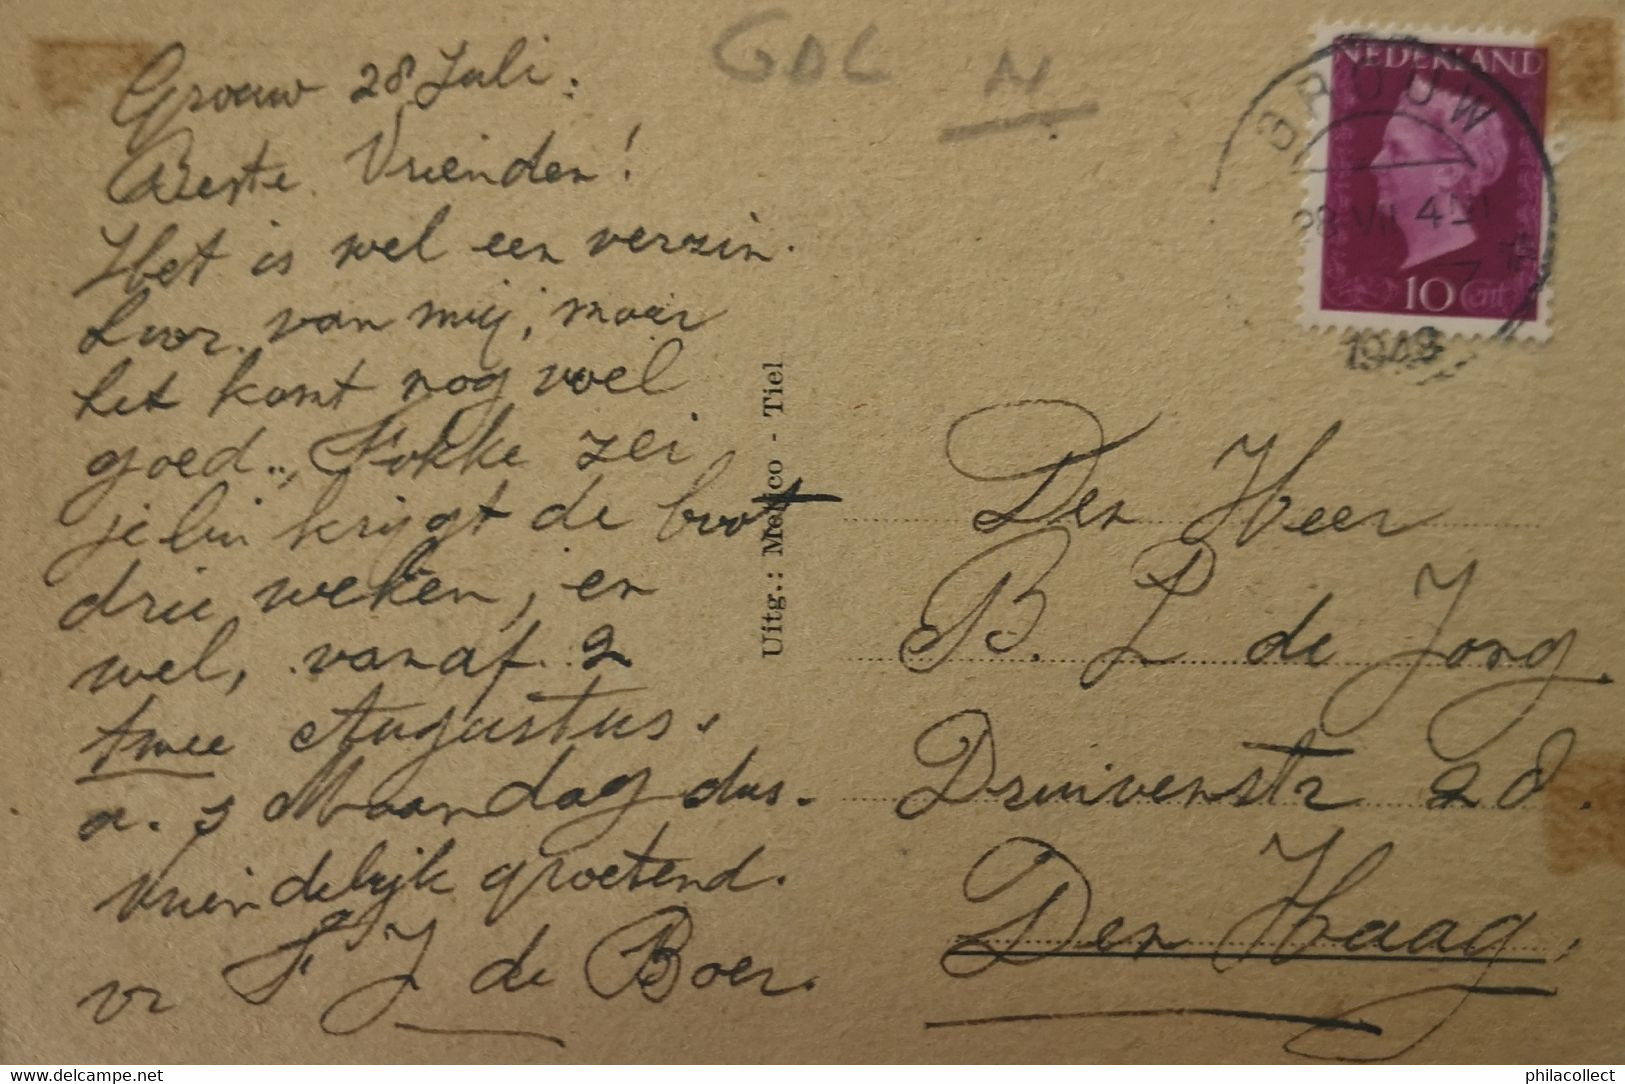 Grouw 28 Juli:
Beste Vrienden!
Het is wel een verzin.
van mij, maar
het komt nog wel
goed.., Fokke zei
krijgt de boot
drie weken, en
wel, vanaf 2
twee Augustus.
a. s Maandag dus.
vriendelijk groetend.
vr F J de Boer.
GDL N
NEDERLAND
10 cnt
GROUW
28 VII 4
1948
Uitg.: Metico - Tiel
Den Heer
B. L de Jong.
Druivenstr 28.
Den Haag.
https://www.delcampe.net
philacollect